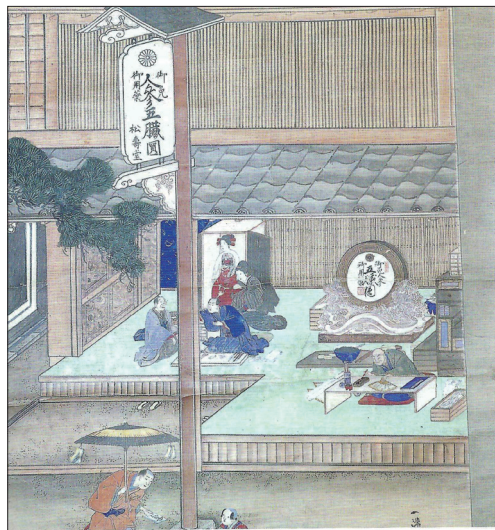 御免
人参五臓圓
御用薬
松壽堂
御免人参
五臓圓